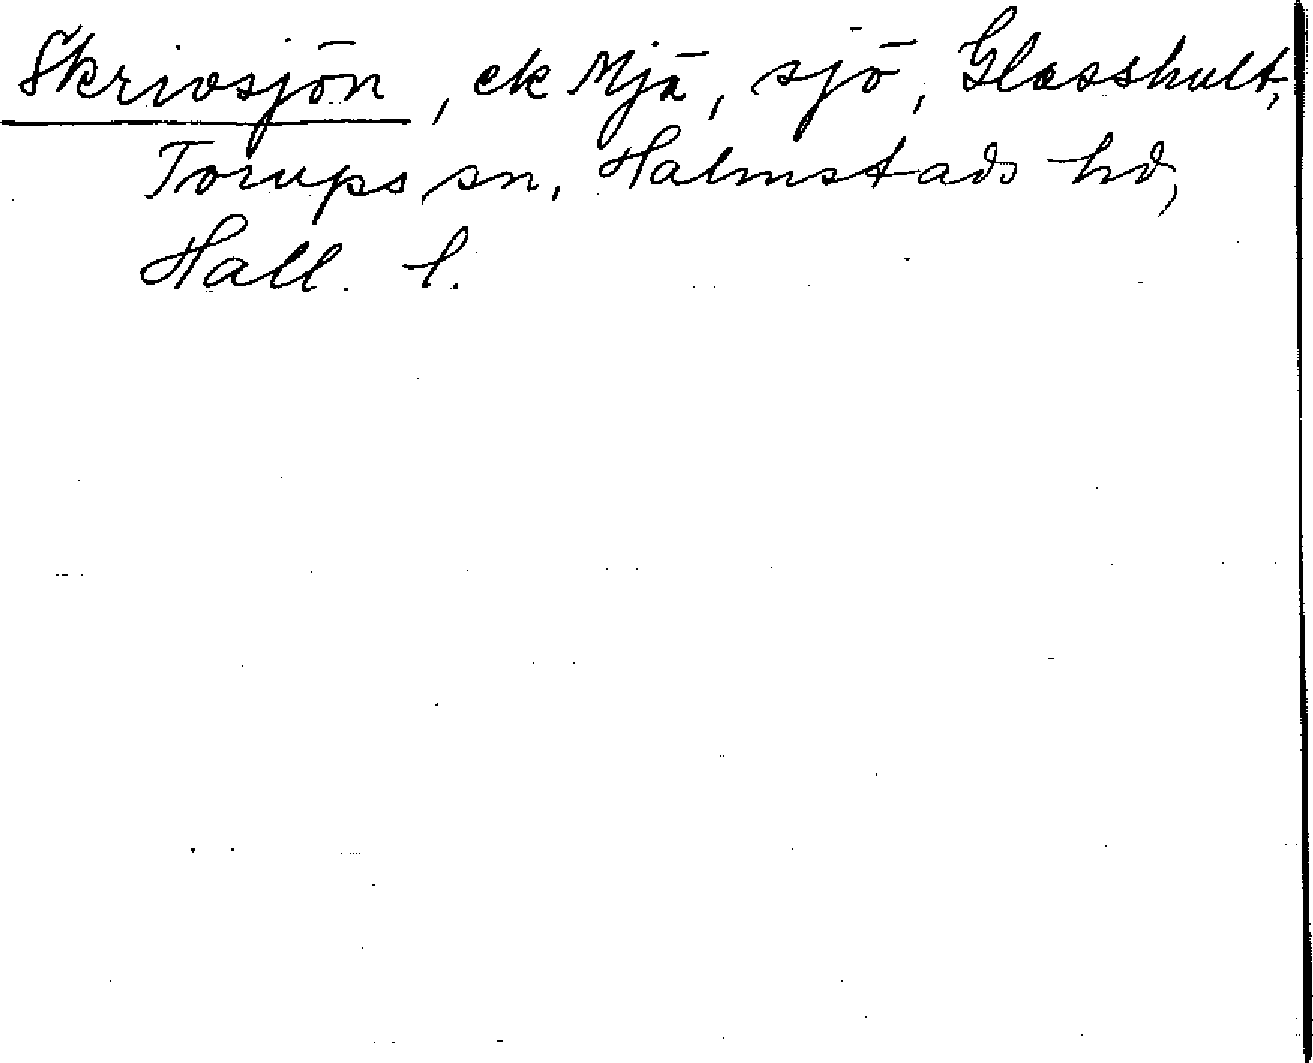 Skrivsjön, ek Mjä, sjö, Glasshult,
Torups sn, Halmstads hd,
Hall. l.